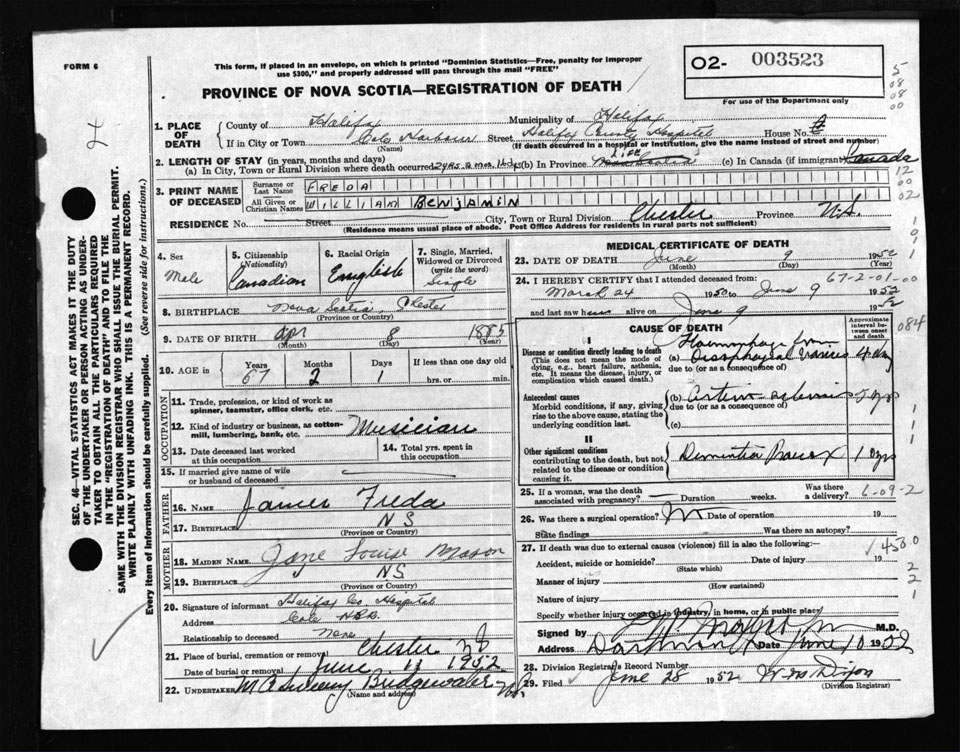 FORM 6
This form, if placed in an envelope, on which is printed "Dominion Statistics—Free, penalty for improper
use $300," and properly addressed will pass through the mail "FREE"
PROVINCE OF NOVA SCOTIA—REGISTRATION OF DEATH
O2- 003523
For use of the Department only
5
08
08
00
1. PLACE OF DEATH
County of Halifax Municipality of Halifax
If in City or Town Cole Harbour Street Halifax County Hospital House No.
(Name) (If death occurred in a hospital or Institution, give the name instead of street and number)
2. LENGTH OF STAY (in years, months and days)
(a) In City, Town or Rural Division where death occurred 2 yrs 2 mos 14 dys (b) In Province LIFE (c) In Canada (if immigrant) Canada
12
00
02
3. PRINT NAME OF DECEASED
Surname or Last Name FREDA
All Given or Christian Names WILLIAM BENJAMIN
RESIDENCE No. Street City, Town or Rural Division Chester Province N.S.
(Residence means usual place of abode. Post Office Address for residents in rural parts not sufficient)
4. Sex Male
5. Citizenship (Nationality) Canadian
6. Racial Origin English
7. Single, Married, Widowed or Divorced (write the word) Single
8. BIRTHPLACE Nova Scotia Chester
(Province or Country)
9. DATE OF BIRTH Apr 8 1885
(Month) (Day) (Year)
10. AGE in Years 67 Months 2 Days 1 If less than one day old
hrs. or min.
OCCUPATION
11. Trade, profession, or kind of work as
spinner, teamster, office clerk, etc.
12. Kind of industry or business, as cotton-
mill, lumbering, bank, etc. Musician
13. Date deceased last worked at this occupation
14. Total yrs. spent in this occupation
15. If married give name of wife
or husband of deceased
FATHER
16. NAME James Freda
17. BIRTHPLACE N S
(Province or Country)
MOTHER
18. MAIDEN NAME Jane Louise Mason
19. BIRTHPLACE N S
(Province or Country)
20. Signature of informant Halifax Co. Hospital
Address Cole Hbr.
Relationship to deceased None
21. Place of burial, cremation or removal Chester
Date of burial or removal June 11 1952
22. UNDERTAKER Bridgewater
(Name and address)
MEDICAL CERTIFICATE OF DEATH
23. DATE OF DEATH June 9 1952
(Month) (Day) (Year)
24. I HEREBY CERTIFY that I attended deceased from: 67-2-01-00
March 24 1950 to June 9 1952
and last saw him alive on June 9 1952
084
CAUSE OF DEATH
Approximate interval between onset and death
I
Disease or condition directly leading to death
(This does not mean the mode of
dying, e.g., heart failure, asthenia,
etc. It means the disease, injury, or
complication which caused death.)
Haemorrhage from
(a) Oesophageal Varices
due to (or as a consequence of)
Antecedent causes
Morbid conditions, if any, giving
rise to the above cause, stating the
underlying condition last.
(b) Arterio sclerosis
due to (or as a consequence of)
(c)
II
Other significant conditions
contributing to the death, but not
related to the disease or condition
causing it.
Dementia Praecox
25. If a woman, was the death
associated with pregnancy? Duration weeks. Was there a delivery? 6-09-2
26. Was there a surgical operation? No Date of operation 19
State findings Was there an autopsy?
27. If death was due to external causes (violence) fill in also the following:—
Accident, suicide or homicide? Date of injury 19
(State which)
450.0
2
2
1
Manner of injury
(How sustained)
Nature of injury
Specify whether injury occurred in industry, in home, or in public place
Signed by M.D.
Address Dartmouth Date June 10 1952
28. Division Registrar's Record Number
29. Filed June 28 1952 W. Dixon
(Division Registrar)
SEC. 46—VITAL STATISTICS ACT MAKES IT THE DUTY
OF THE UNDERTAKER OR PERSON ACTING AS UNDER-
TAKER TO OBTAIN ALL THE PARTICULARS REQUIRED
IN THE "REGISTRATION OF DEATH" AND TO FILE THE
SAME WITH THE DIVISION REGISTRAR WHO SHALL ISSUE THE BURIAL PERMIT.
WRITE PLAINLY WITH UNFADING INK. THIS IS A PERMANENT RECORD.
Every item of information should be carefully supplied. (See reverse side for instructions.)